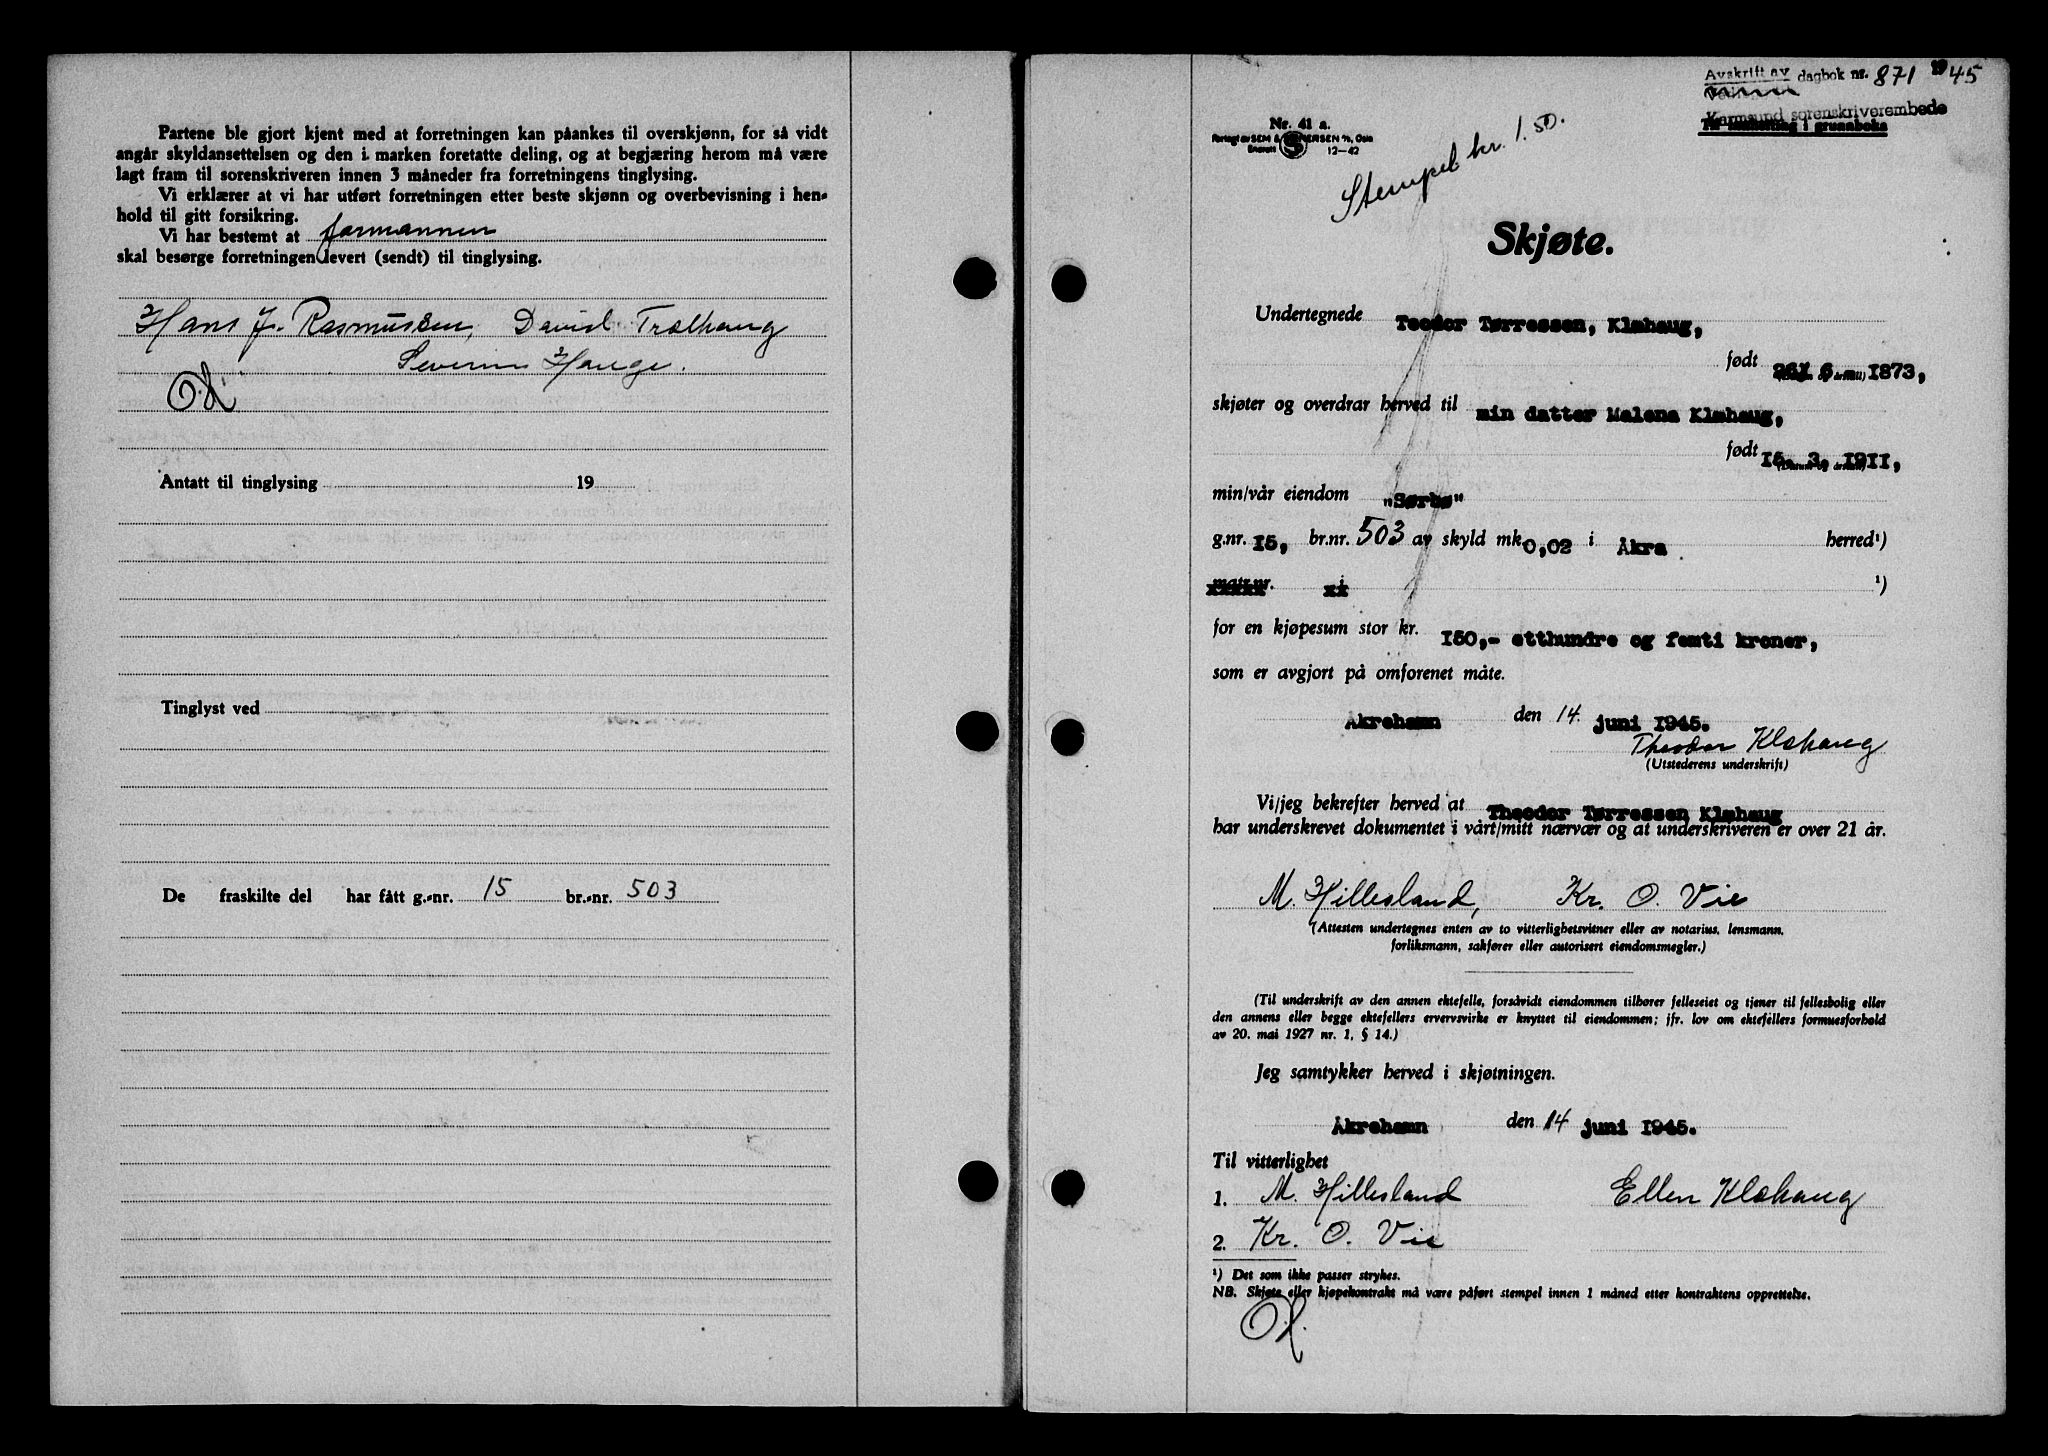 Partene ble gjort kjent med at forretningen kan påankes til overskjønn, for så vidt
angår skyldansettelsen og den i marken foretatte deling, og at begjæring herom må være
lagt fram til sorenskriveren innen 3 måneder fra forretningens tinglysing.
Vi erklærer at vi har utført forretningen etter beste skjønn og overbevisning i hen-
hold til gitt forsikring.
Vi har bestemt at formannen
skal besørge forretningen levert (sendt) til tinglysing.
Hans J. Rasmussen, David Trælhaug
Severin Hauge.
Antatt til tinglysing 19
Tinglyst ved
De fraskilte del har fått g.-nr. 15 br.-nr. 503
Avskrift av dagbok nr. 871 1945
Karmsund sorenskriverembede
Nr. 41 a.
12-42
Stempel kr. 1.50.
Skjøte.
Undertegnede Teodor Tørressen, Klæhaug,
født 26. 6. 1873,
skjøter og overdrar herved til min datter Malena Klæhaug,
født 15. 3. 1911,
min/vår eiendom "Sørbø"
g.nr. 15, br.nr. 503 av skyld mk 0,02 i Åkra herred¹)
matr.nr. i ¹)
for en kjøpesum stor kr. 150,- etthundre og femti kroner,
som er avgjort på omforenet måte.
Åkrehamn den 14. juni 1945.
Theodor Klæhaug
(Utstederens underskrift)
Vi/jeg bekrefter herved at Theodor Tørressen Klæhaug
har underskrevet dokumentet i vårt/mitt nærvær og at underskriveren er over 21 år.
M. Hillesland, Kr. O. Vie
(Attesten undertegnes enten av to vitterlighetsvitner eller av notarius, lensmann,
forliksmann, sakfører eller autorisert eiendomsmegler.)
(Til underskrift av den annen ektefelle, forsåvidt eiendommen tilhører felleseiet og tjener til fellesbolig eller
den annens eller begge ektefellers ervervsvirke er knyttet til eiendommen; jfr. lov om ektefellers formuesforhold
av 20. mai 1927 nr. 1, § 14.)
Jeg samtykker herved i skjøtningen.
Åkrehamn den 14 juni 1945.
Til vitterlighet
1. M. Hillesland Ellen Klæhaug
2. Kr. O. Vie
¹) Det som ikke passer strykes.
NB. Skjøte eller kjøpekontrakt må være påført stempel innen 1 måned etter kontraktens opprettelse.